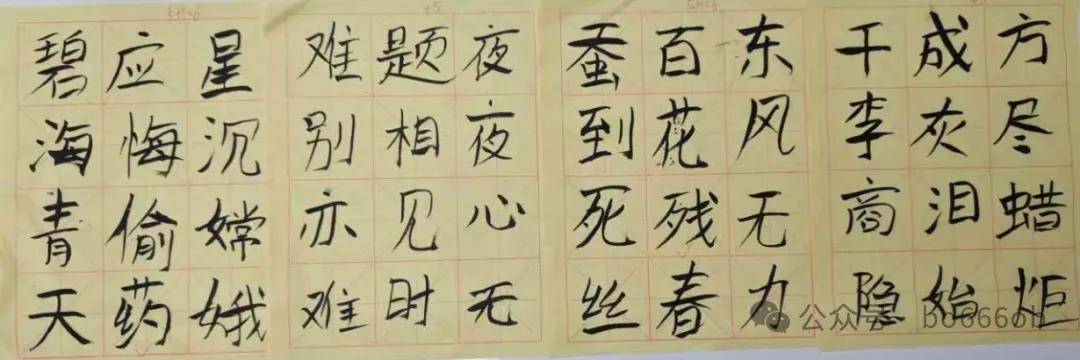 星沉嫦娥
应悔偷药
碧海青天
夜夜心无
题相见时
难别亦难
东风无力
百花残春
蚕到死丝
方尽蜡炬
成灰泪始
干李商隐
公众号